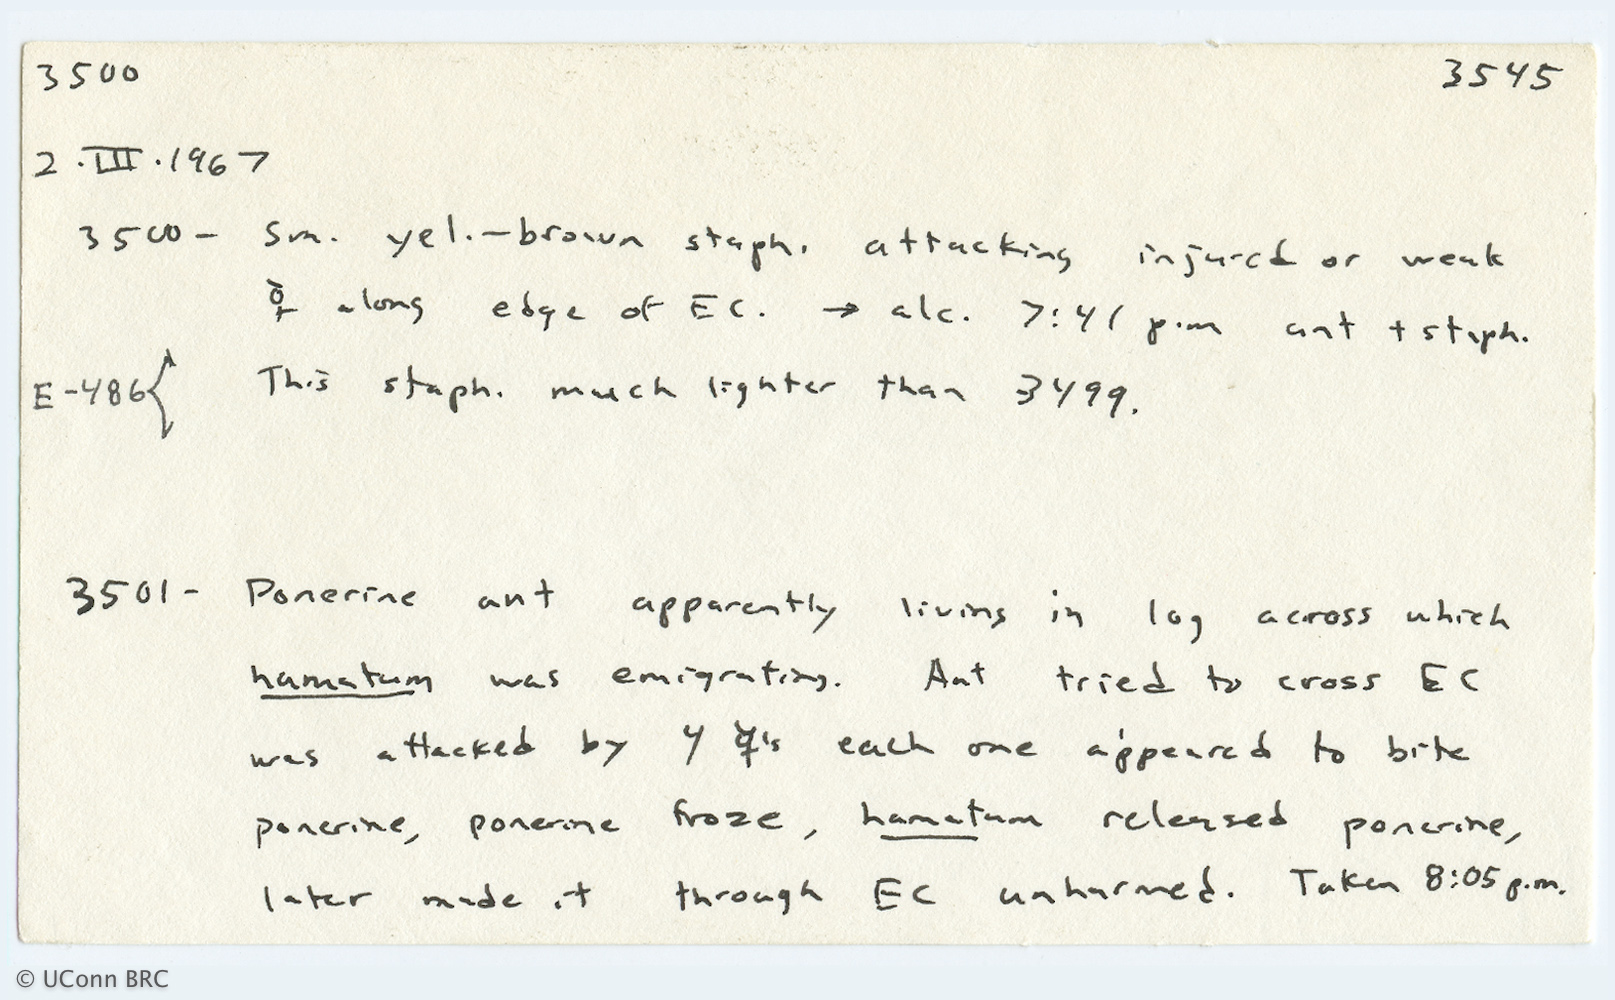 3500 3545
2.III.1967
3500- Sm. yel.-brown staph. attacking injured or weak
☿ along edge of EC. → alc. 7:41 p.m ant + staph.
E-486{ This staph. much lighter than 3499.
3501- Ponerine ant apparently living in log across which
hamatum was emigrating. Ant tried to cross EC
was attacked by 4 ☿'s each one appeared to bite
ponerine, ponerine froze, hamatum released ponerine,
later made it through EC unharmed. Taken 8:05 p.m.
© UConn BRC